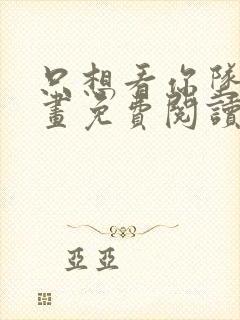 只想看你墜
畫免費閱讀
亞亞